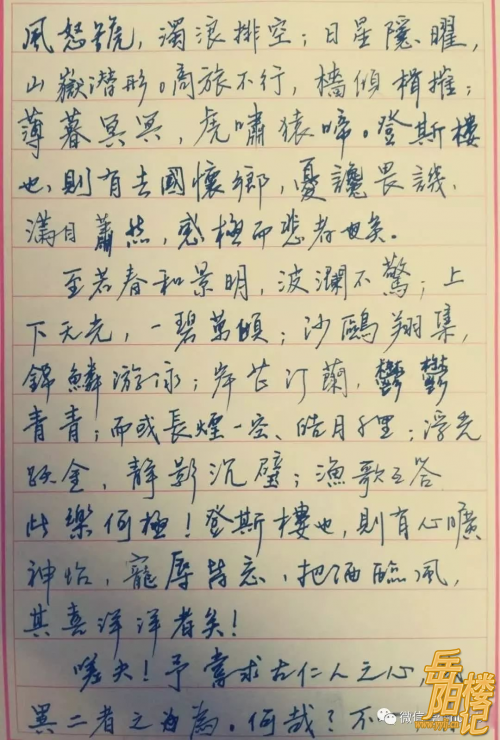 風怒號，濁浪排空；日星隱曜，
山嶽潛形。商旅不行，檣傾楫摧；
薄暮冥冥，虎嘯猿啼。登斯樓
也，則有去國懷鄉，憂讒畏譏，
滿目蕭然，感極而悲者矣。
至若春和景明，波瀾不驚；上
下天光，一碧萬頃；沙鷗翔集，
錦鱗游泳；岸芷汀蘭，鬱鬱
青青；而或長煙一空、皓月千里；浮光
躍金，靜影沉璧；漁歌互答
此樂何極！登斯樓也，則有心曠
神怡，寵辱皆忘、把酒臨風，
其喜洋洋者矣！
嗟夫！予嘗求古仁人之心，
異二者之為。何哉？不
岳阳楼记
微信